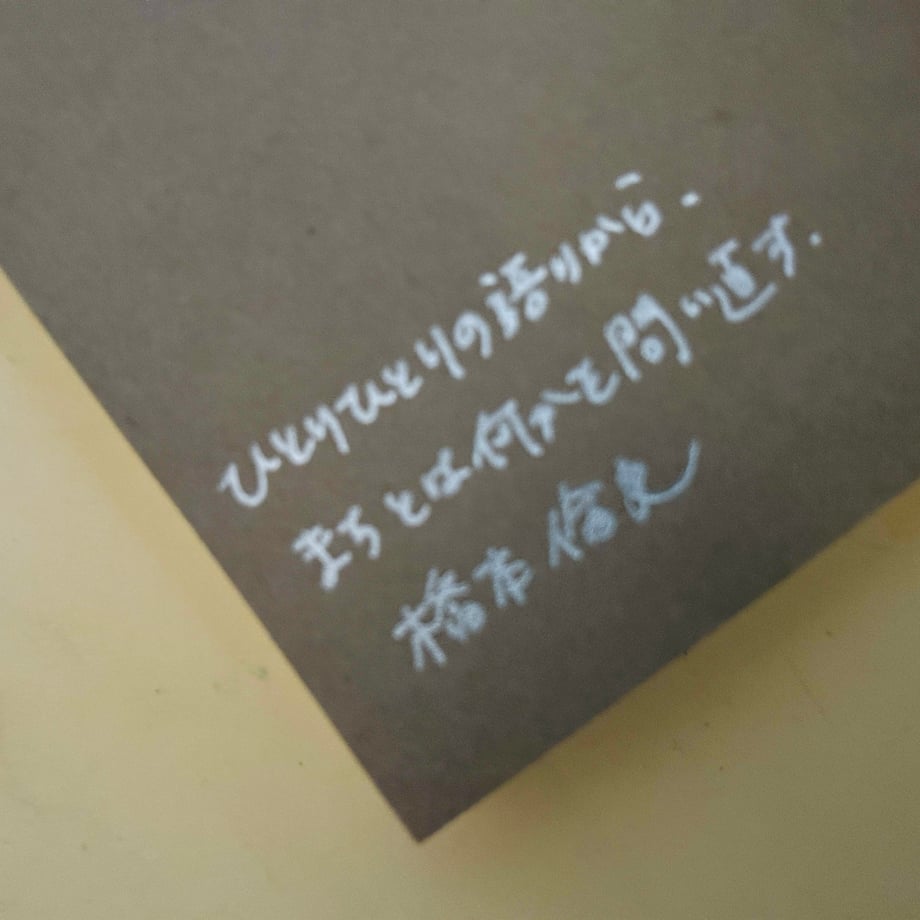 ひとりひとりの語りから.
まちとは何かを問い直す.
橋本倫史